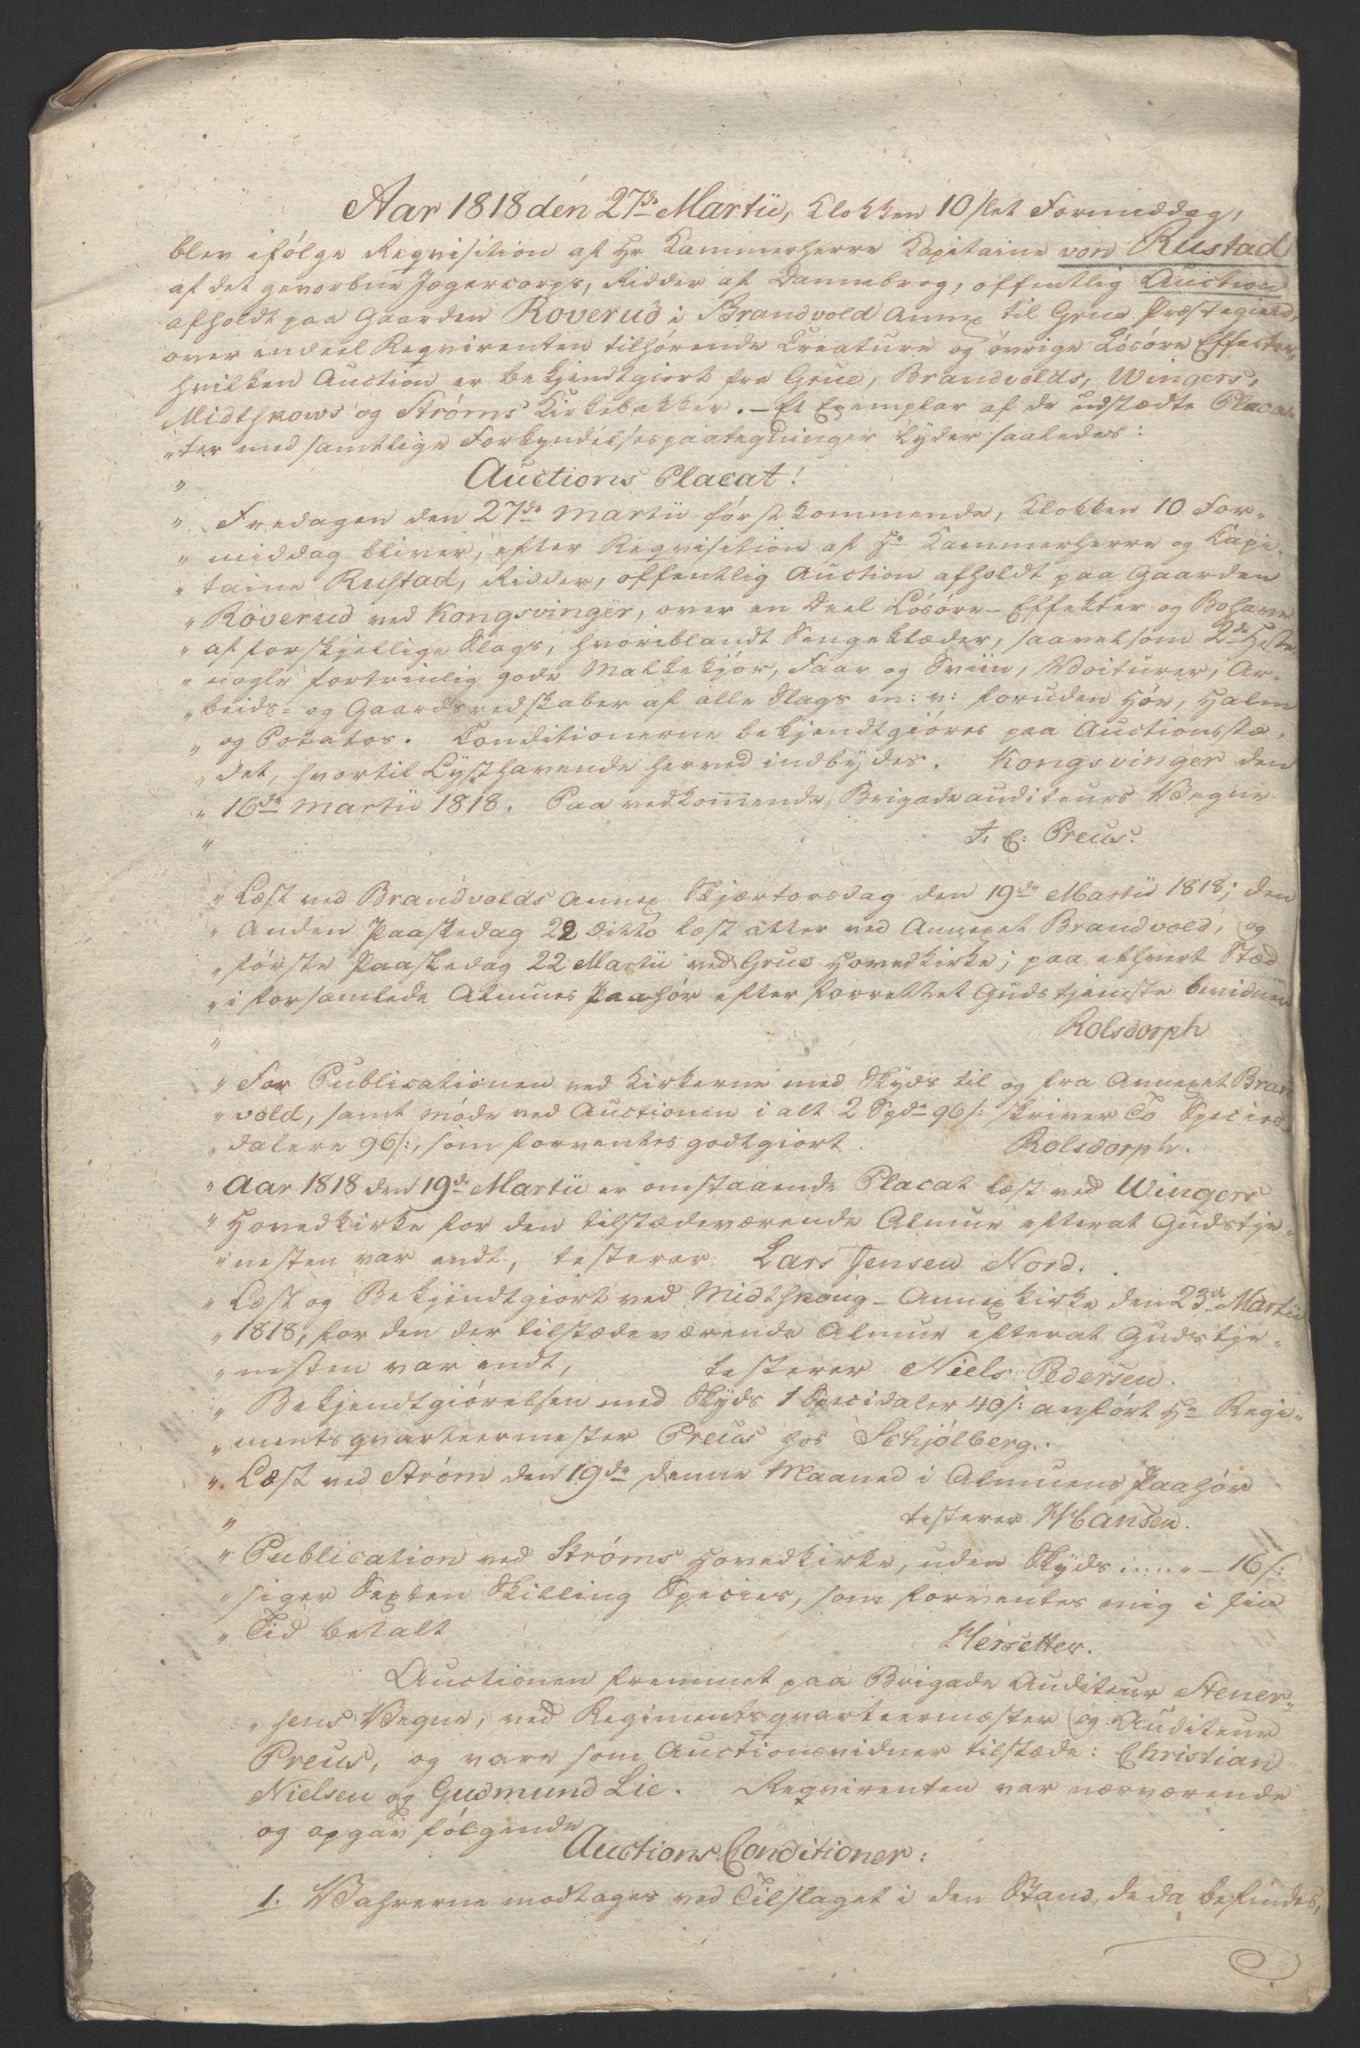 Aar 1818 den 27de Martii, Klokken 10 slet Formiddag,
blev ifølge Reqvisition af Hr Kammerherre Kapitaine von Rustad
af det gevorbne Jægercorps, Ridder af Dannebrog, offentlig Auction
afholdt paa Gaarden Roverud i Brandvold Annex til Grue Præstegield,
over endeel Reqvirenten tilhørende Creature og øvrige Løsøre Effecter,
hvilken Auction er bekjendtgiort fra Grue, Brandvolds, Wingers,
Midtskows og Strøms Kirkebakker. – Et Exemplar af de udstædte Placa
„ter med samtlige Forkyndelsespaategninger lyder saaledes:
„ Auctions Placat!
„ Fredagen den 27de Martii førstkommende, Klokken 10 For-
„ middag bliver, efter Reqvisition af Hr Kammerherre og Capi-
„ taine Rustad, Ridder, offentlig Auction afholdt paa Gaarden
„ Roverud ved Kongsvinger, over en Deel Løsøre-Effekter og Bohave
„ af forskjellige Slags, hvoriblandt Sengeklæder, saavelsom 2de Heste,
„ nogle fortrinlig gode Malkekjør, Faar og Sviin, Voiturer, Ar-
„ beids- og Gaardsredskaber af alle Slags m: v: foruden Høe, Halm
„ og Potatos. Conditionerne bekjendtgiøres paa Auctionsstæ-
„ det, hvortil Lysthavende herved indbydes. Kongsvinger den
„ 16de Martii 1818. Paa vedkommende Brigadeauditeurs Vegne
„ J: C: Preus.
„ Læst ved Brandvolds Annex Skjærtorsdag den 19de Martii 1818; den
„ Anden Paaskedag 22 ditto læst atter ved Annexet Brandvold, og
„ første Paaskedag 22 Martii ved Grue Hovedkirke; paa ethvert Stæd
„ i forsamlede Almues Paahør efter forrettet Gudstjeneste bevidner
„ Rolsdorph
„ For Publicationen ved Kirkerne med Skyds til og fra Annexet Bran
„ vold, samt Møde ved Auctionen i alt 2 Spd 96 s: skriver To Species
„ dalere 96 s:, som forventes godtgiort. Rolsdorph.
„ Aar 1818 den 19de Martii er omstaaende Placat læst ved Wingers
„ Hovedkirke for den tilstædeværende Almue efterat Gudstje-
„ nesten var endt, testerer Lars Jensen Nord.
„ Læst og Bekjendtgiort ved Midtskoug-Annexkirke den 23de Martii
„ 1818, for den der tilstædeværende Almue efterat Gudstje-
„ nesten var endt, testerer Niels Pedersen.
„ Bekjendtgiørelsen med Skyds 1 Specidaler 40 s: anført Hr Regi-
„ mentsqvarteermester Preus hos Schjølberg.
„ Læst ved Strøm den 19de denne Maaned i Almuens Paahør
„ testerer Hansen.
„ Publication ved Strøms Hovedkirke, uden Skyds „ – 16 s:
„ siger Sexten Skilling Species, som forventes mig i sin
„ Tid betalt Hersetter.
Auctionen fremmet paa Brigade Auditeur Stener-
„ sens Vegne, ved Regimentsqvarteermæster og Auditeur
Preus, og vare som Auctionsvidner tilstæde: Christian
Nielsen og Gudmund Lie. Reqvirenten var nærværende
og opgav følgende
Auctions Conditioner:
1. Vahrerne modtages ved Tilslaget i den Stand, de da befindes,